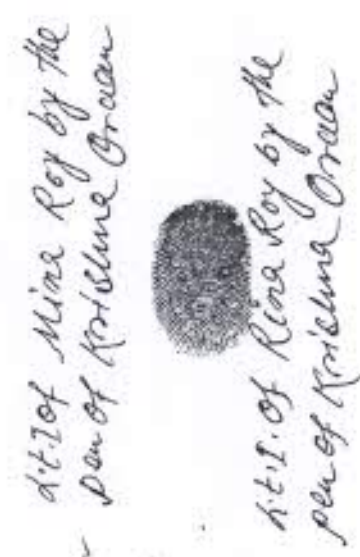 L.t.I of Mina Roy by the
pen of Krishna Oraon
L.t.I. of Rina Roy by the
pen of Krishna Oraon